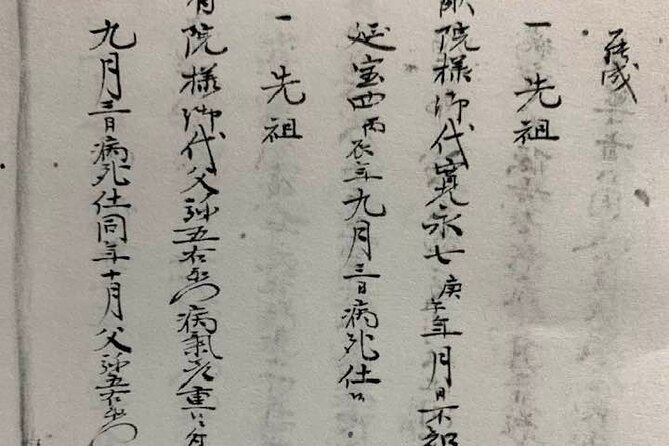 罷成
一 先祖
猷院様御代寛永七庚午年月日不知
延宝四丙辰年九月三日病死仕候
一 先祖
有院様御代父弥五右衛門病氣差重
九月三日病死仕同年十月父弥五右衛門